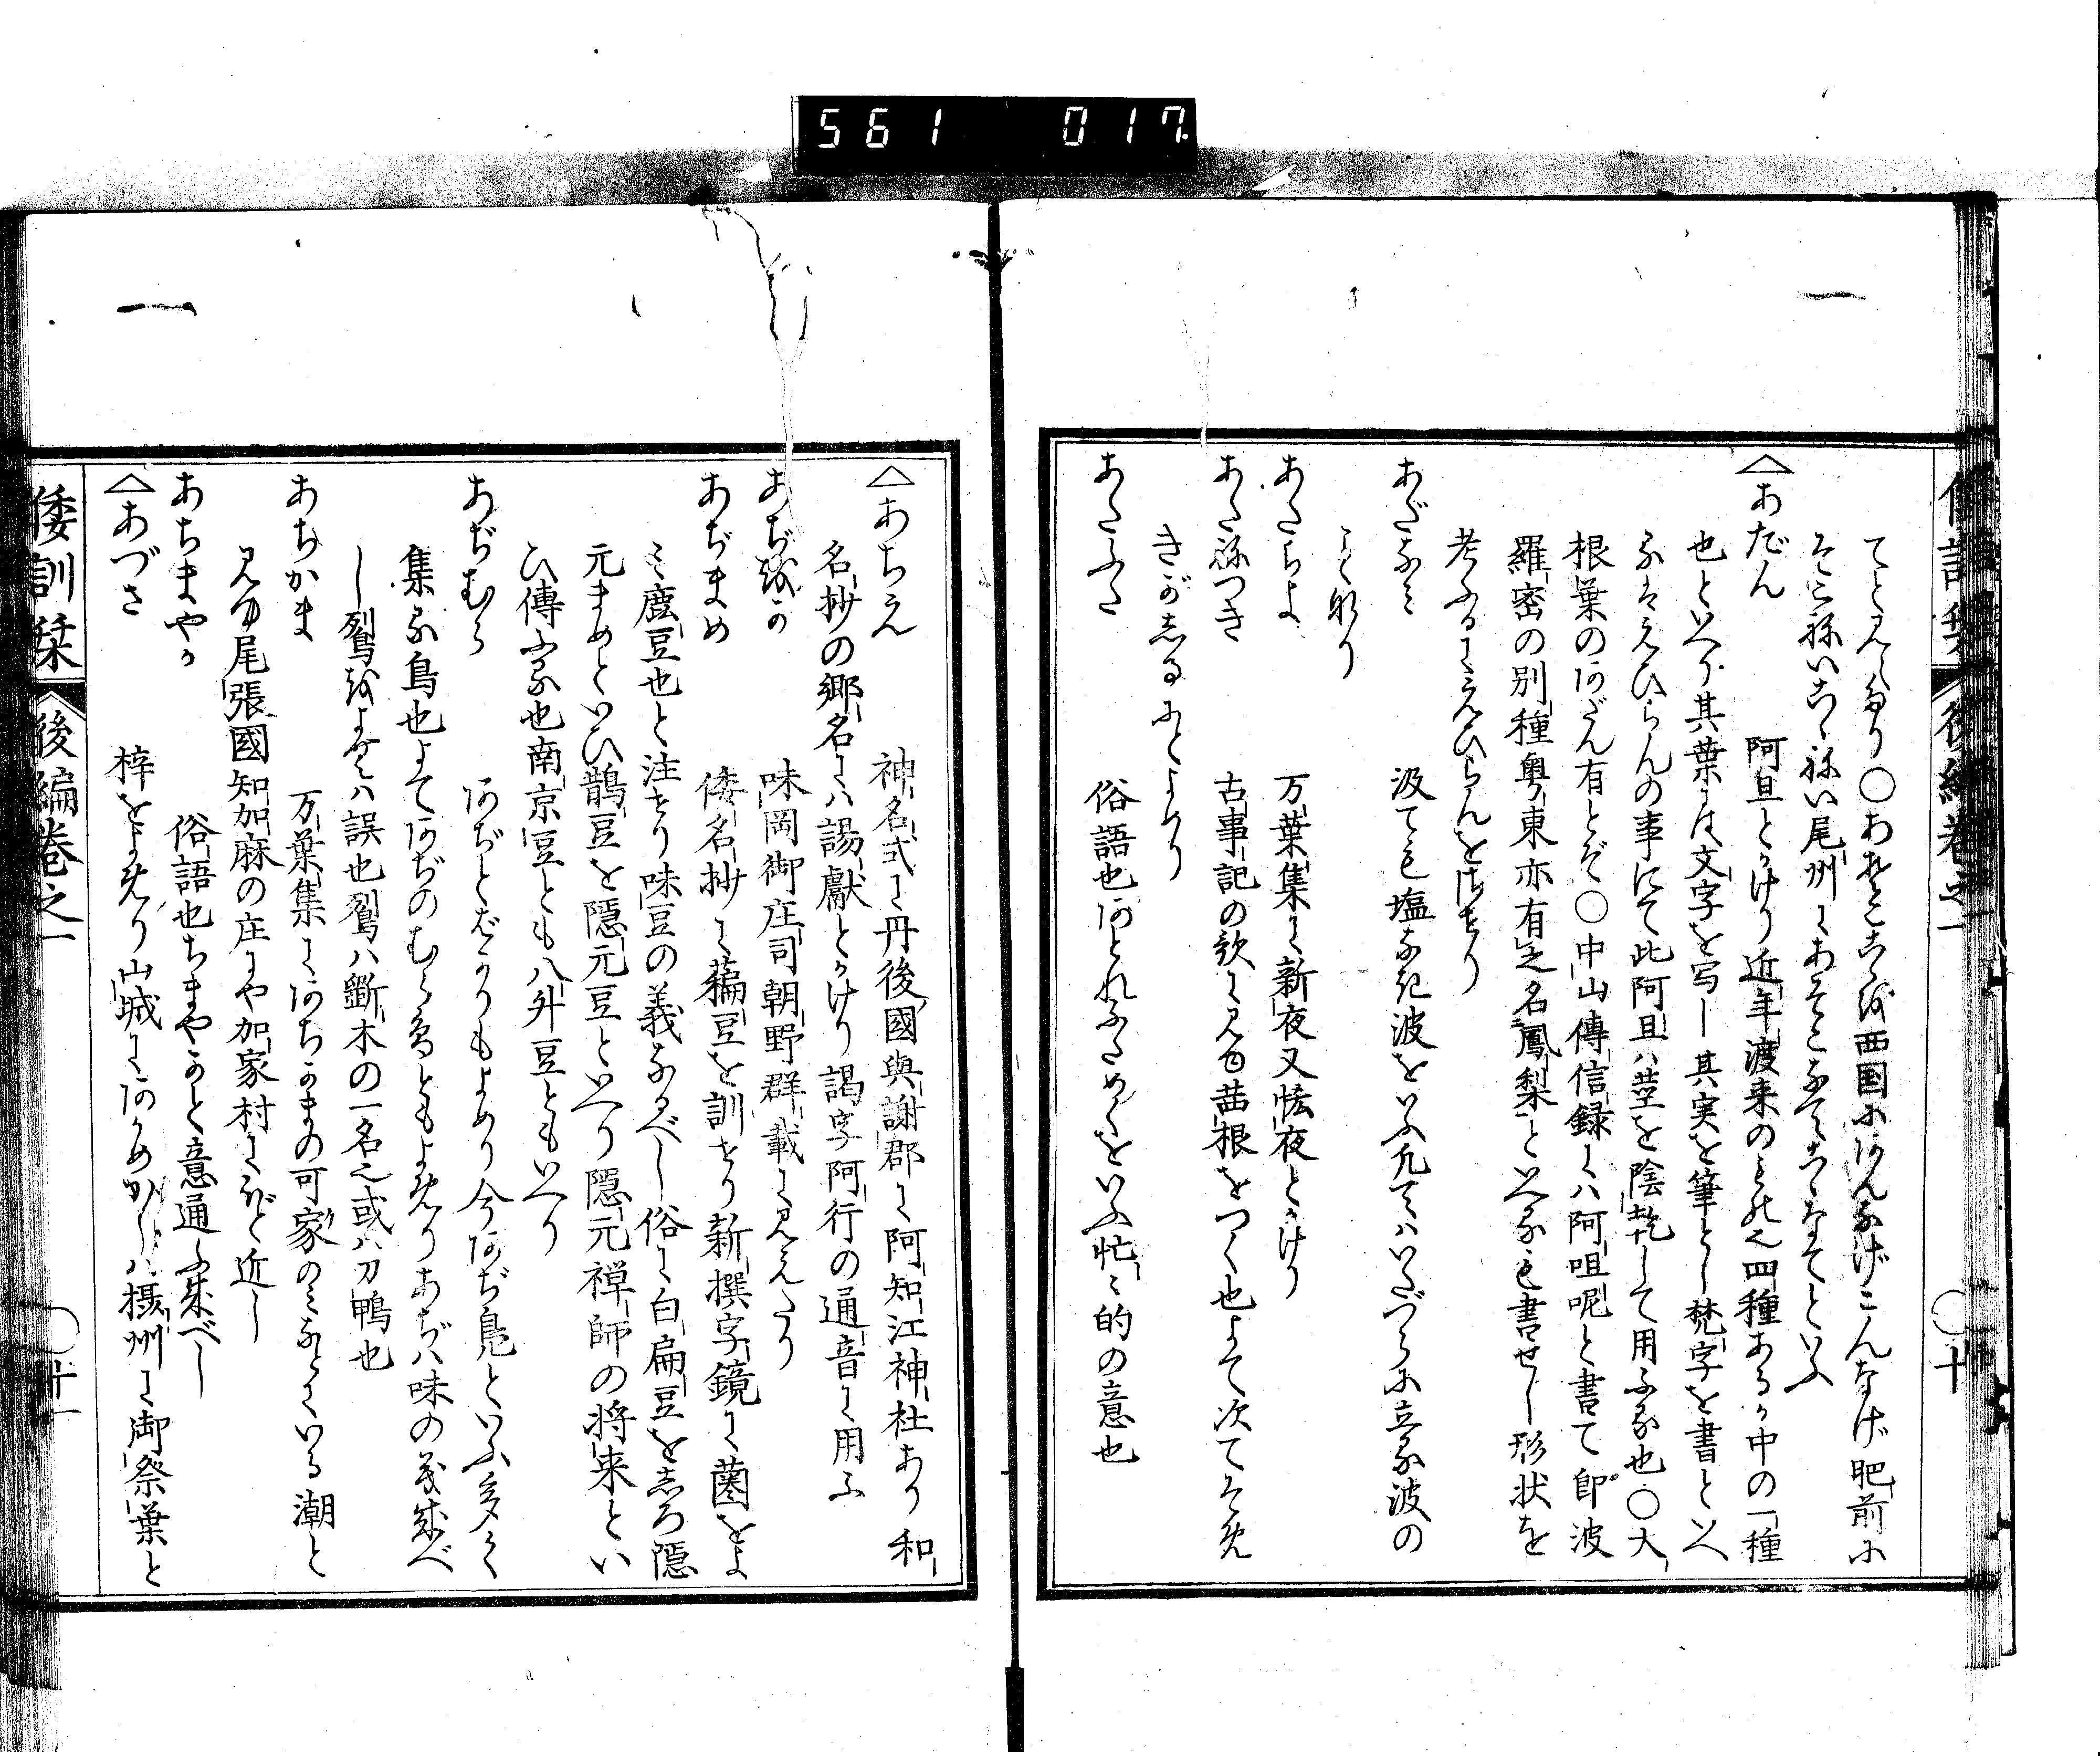 561 017
一
てと見えたり○あすこゝを西国にあんなげこんなげ肥前に
そこねいこゝねい尾州にあそこなてこゝなてといふ
△あだん 阿旦とかけり近年渡来のもの也四種あるか中の一種
也といへり其葉には文字を写し其実を筆とし梵字を書といへ
るはえひらんの事にて此阿旦ハ莖を陰乾して用ふる也○大
根葉のあだん有とぞ○中山傳信録にハ阿咀呢と書て即波
羅密の別種粤東亦有之名鳳梨といへるを書せし形状を
考ふるにえひらんを混せり
あだなみ 汲ても塩なき波をいふ凡てハいたづらに立る波の
こと也
あたらよ 万葉集に新夜又恡夜とかけり
あたねつき 古事記の歌に見ゆ茜根をつく也よて次てそめ
きがしるにとよめり
あたふた 俗語也あわたゝしきをいふ忙々的の意也
倭訓栞 後編巻之一 ○十
一
△あちえ 神名式に丹後國與謝郡に阿知江神社あり和
名抄の郷名にハ謁獻とかけり謁字阿行の通音に用ふ
あぢをか 味岡御庄司朝野群載に見えたり
あぢまめ 倭名抄に藊豆を訓せり新撰字鏡に藊をよ
み鹿豆也と注せり味豆の義なるべし俗に白扁豆をしろ隠
元まめといひ鵲豆を隠元豆といへり隠元禅師の将来とい
ひ傳ふる也南京豆とも八升豆ともいへり
あぢむら あぢとばかりもよめり今あぢ鳧といふ多く
集る鳥也よてあぢのむら鳥ともよめりあぢハ味の義成べ
し鴷をよむハ誤也鴷ハ斲木の一名也或ハ刀鴨也
あちかま 万葉集にあちかまの可家のみなとにいる潮と
見ゆ尾張國知加麻の庄にや加家村にほど近し
あちまやか 俗語也ちまやかと意通ふ成べし
△あづさ 梓をよめり山城にあかめがしハ摂州に御祭葉と
倭訓栞 後編巻之一 ○十一